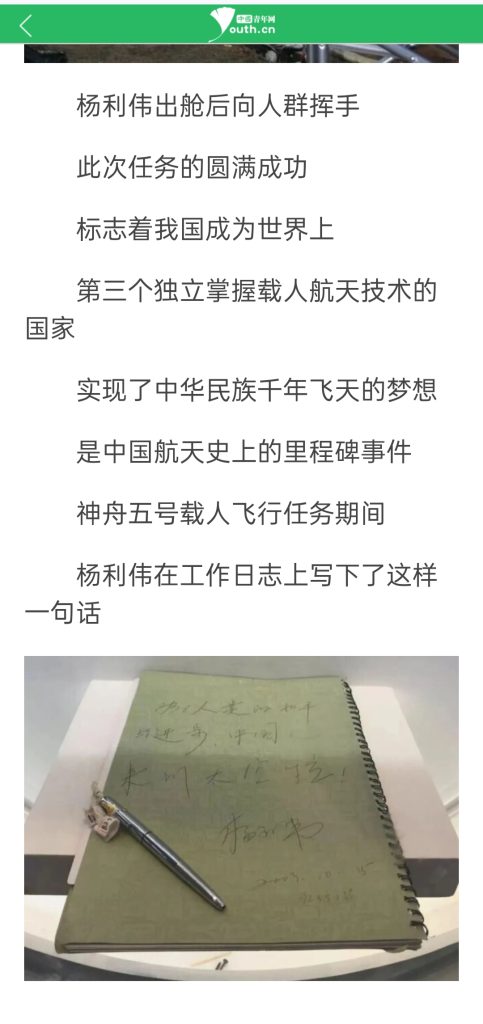 中国青年网
Youth.cn
杨利伟出舱后向人群挥手
此次任务的圆满成功
标志着我国成为世界上
第三个独立掌握载人航天技术的
国家
实现了中华民族千年飞天的梦想
是中国航天史上的里程碑事件
神舟五号载人飞行任务期间
杨利伟在工作日志上写下了这样
一句话
为了人类的和平
与进步,中国人
来到太空了!
杨利伟
2003.10.15